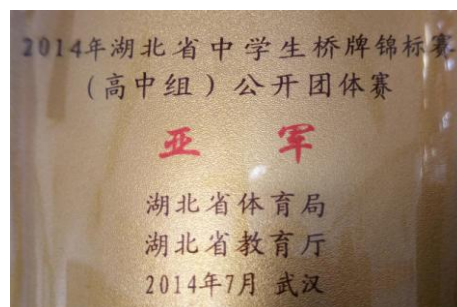 2014年湖北省中学生桥牌锦标赛
（高中组）公开团体赛
亚军
湖北省体育局
湖北省教育厅
2014年7月 武汉